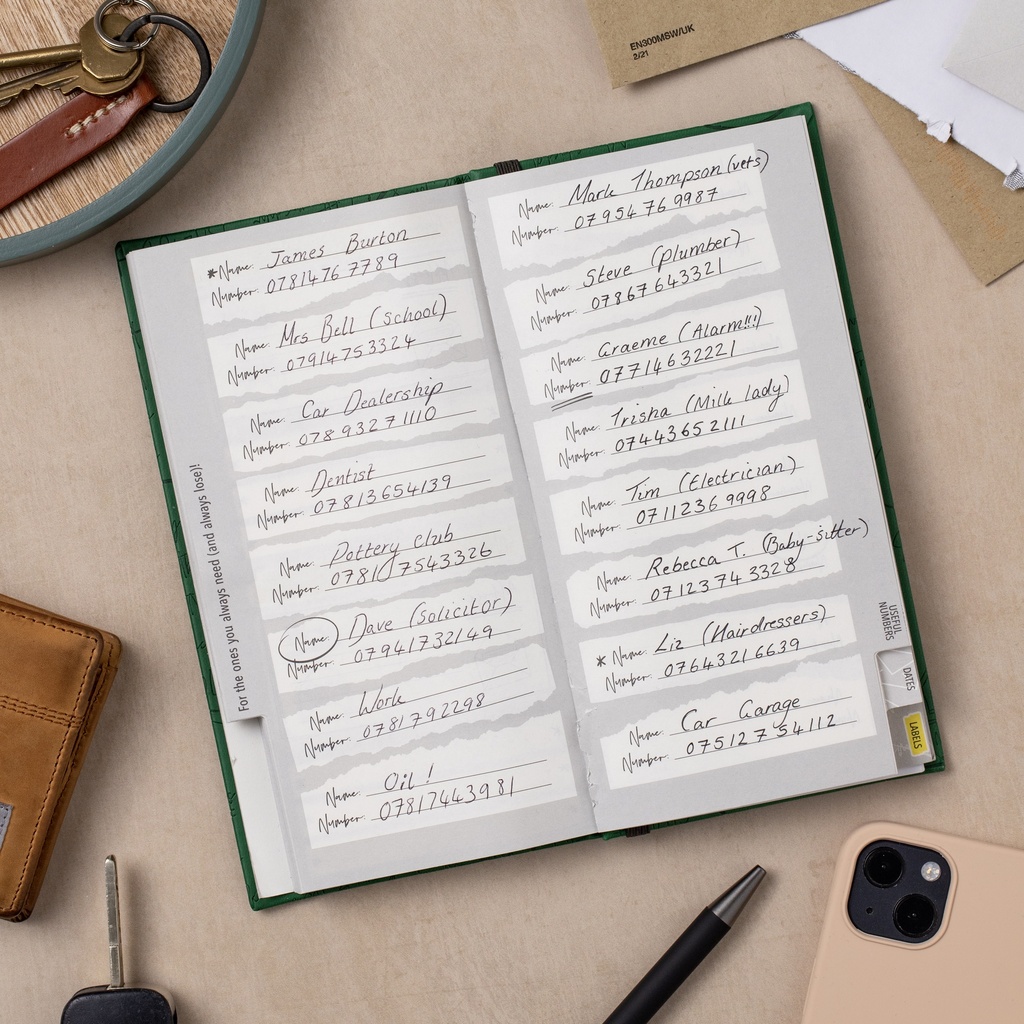 EN300MSW/UK
2/21
For the ones you always need (and always lose)!
*Name: James Burton
Number: 0781476 7789
Name: Mrs Bell (School)
Number: 07914753324
Name: Car Dealership
Number: 078 9327 1110
Name: Dentist
Number: 07813654139
Name: Pottery club
Number: 0781 7543326
Name: Dave (Solicitor)
Number: 07941732149
Name: Work
Number: 0781792298
Name: Oil!
Number: 07817443981
Name: Mark Thompson (vets)
Number: 07954 76 9987
Name: Steve (plumber)
Number: 07867643321
Name: Graeme (Alarm!!!)
Number: 07714632221
Name: Trisha (Milk lady)
Number: 07443652111
Name: Tim (Electrician)
Number: 0711236 9998
Name: Rebecca T. (Baby-sitter)
Number: 0712374 3328
* Name: Liz (Hairdressers)
Number: 07643216639
Name: Car Garage
Number: 07512754112
USEFUL
NUMBERS
DATES
LABELS